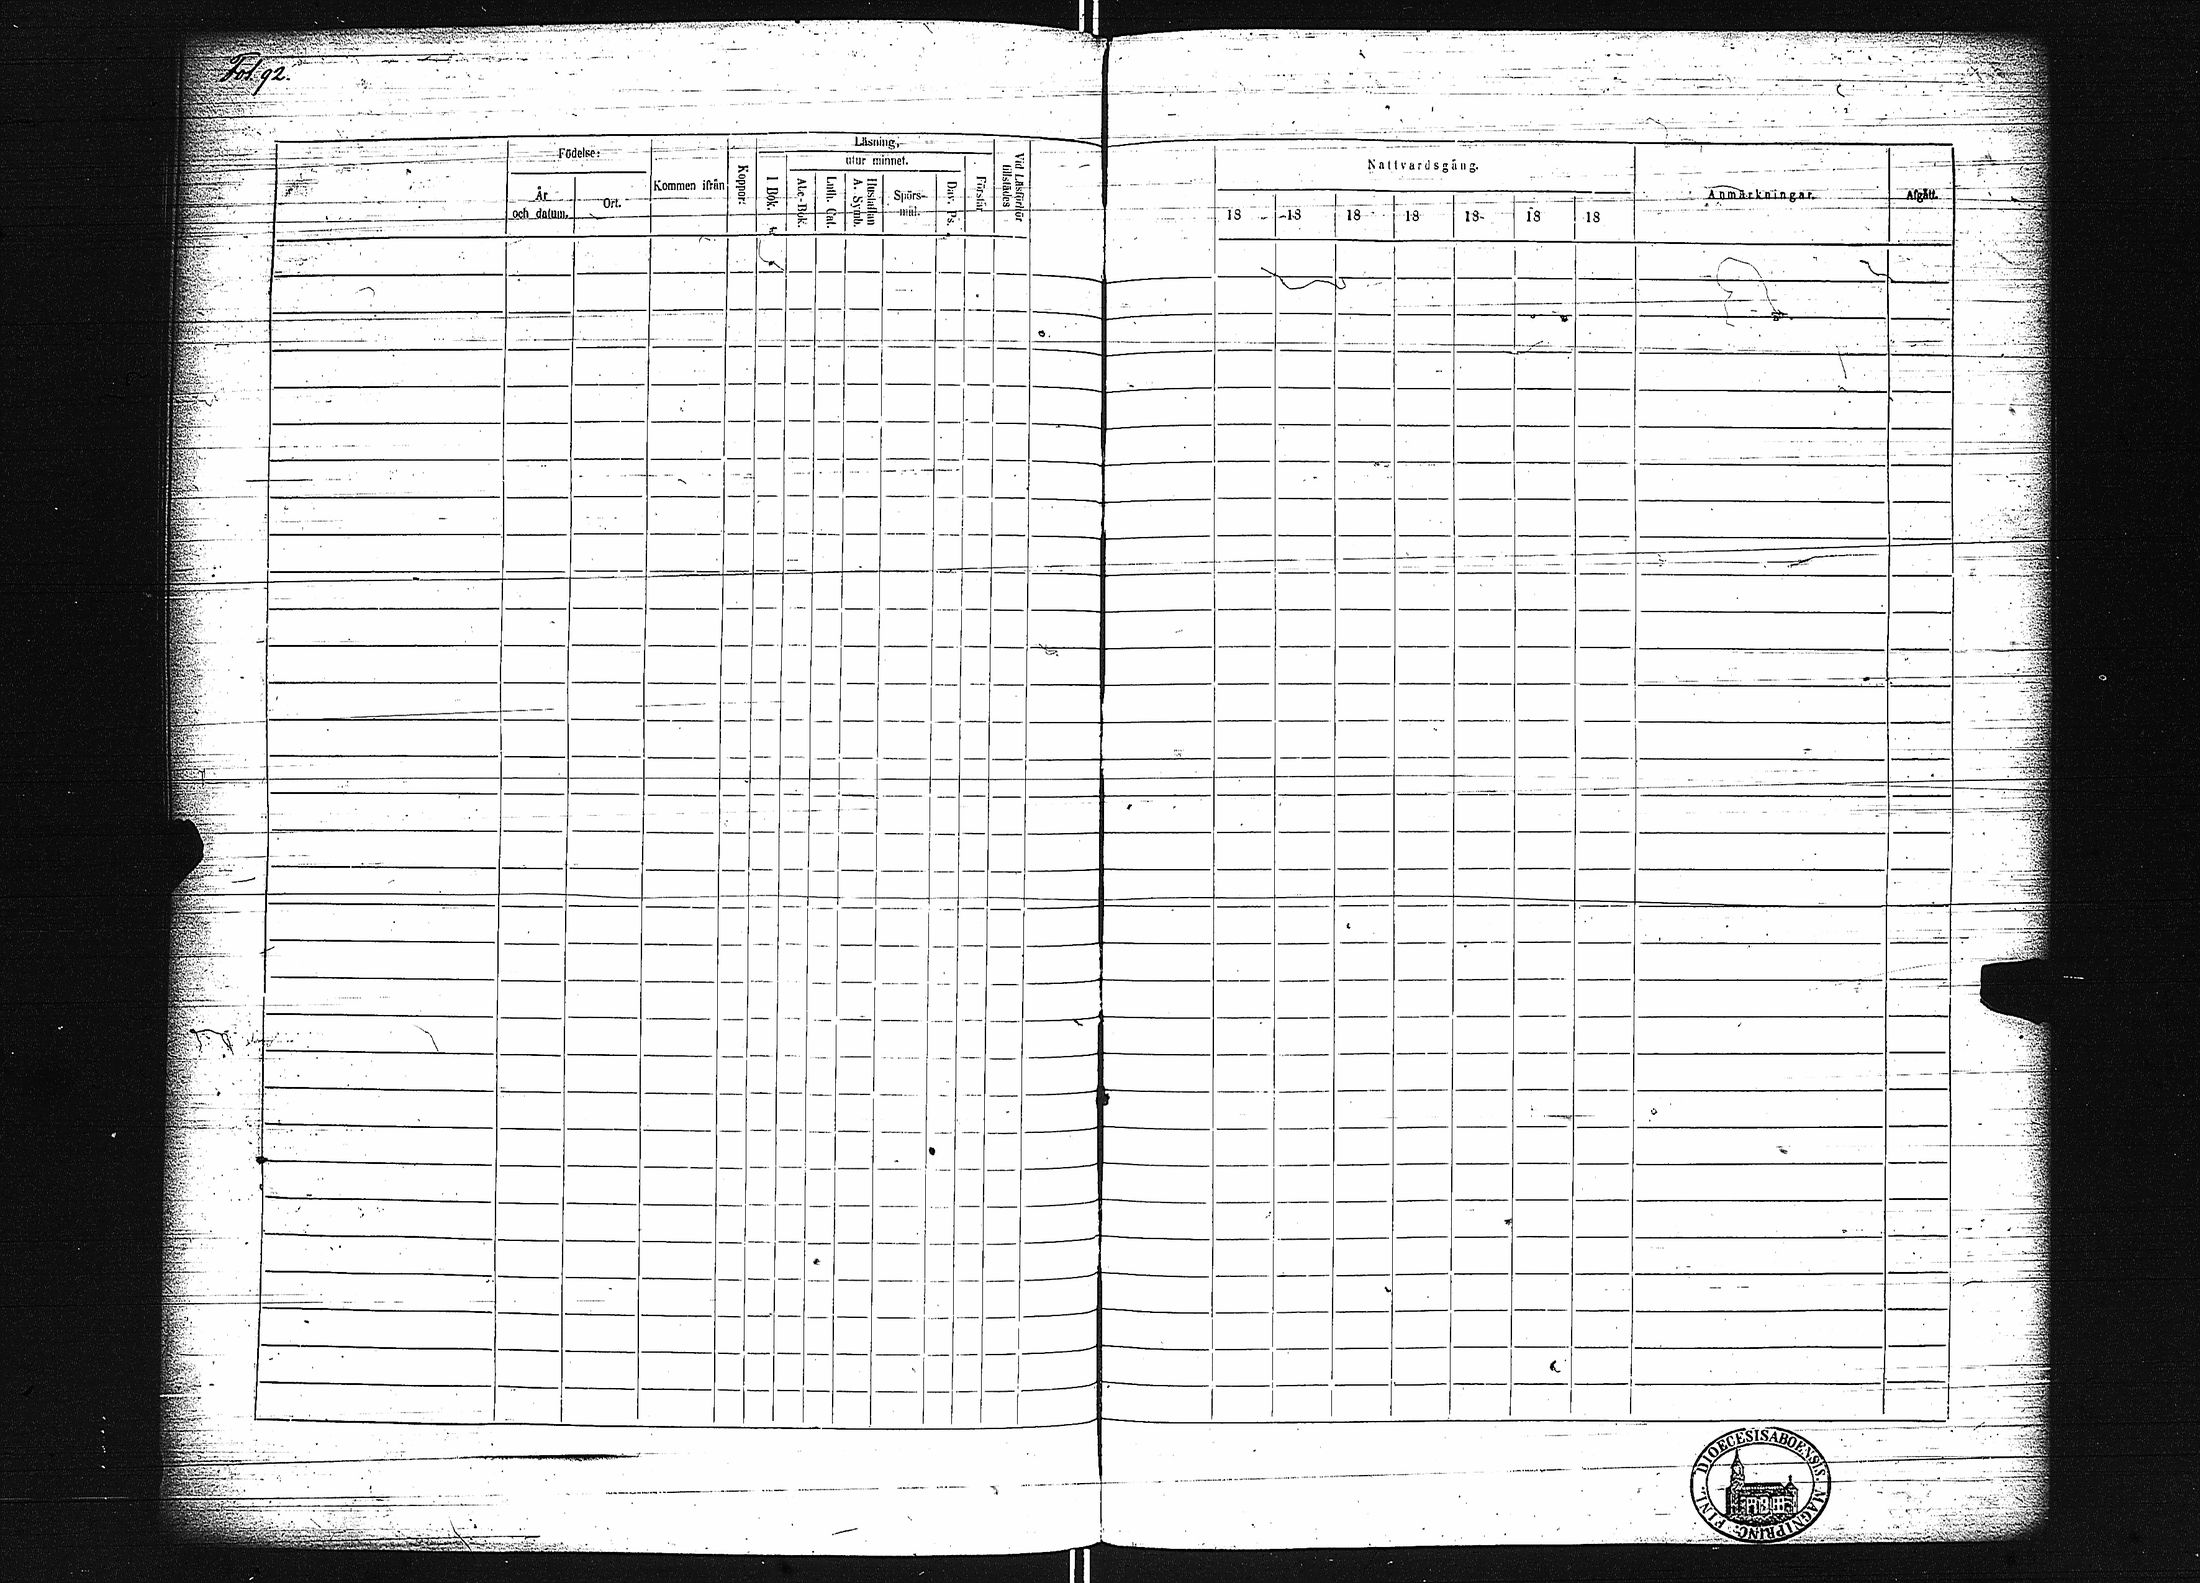 Fol. 92.
Födelse:
År och datum.
Ort.
Kommen ifrån
Koppor:
Läsning,
I Bok.
utur minnet.
Abc-Bok.
Luth. Cat.
Hustaflan A. Symb.
Spörs-mål.
Dav. Ps.
Förstår
Vid Läsförhör tillstädes
Nattvardsgång.
18 18 18 18 18 18 18
Anmärkningar.
Afgått.
DIOECESIS ABOENSIS. MAGNI PRINC. FINL.